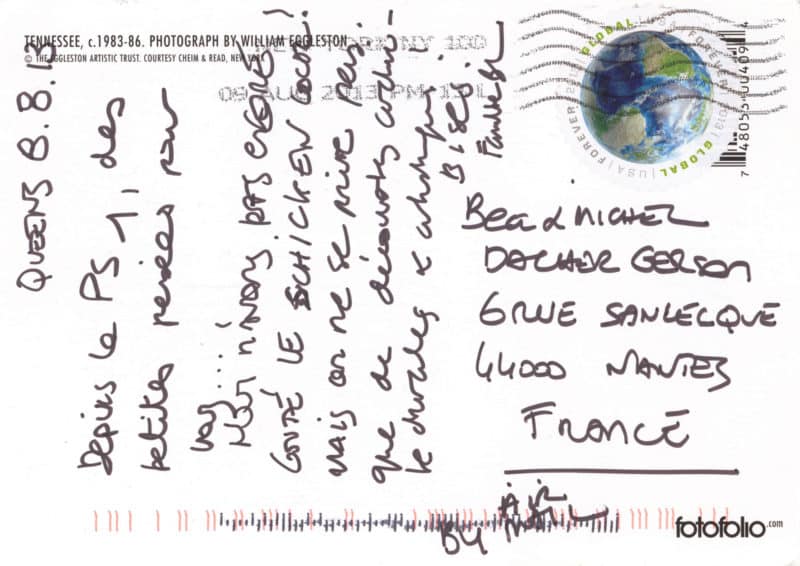 TENNESSEE, c.1983-86. PHOTOGRAPH BY WILLIAM EGGLESTON
© THE EGGLESTON ARTISTIC TRUST. COURTESY CHEIM & READ, NEW YORK
NY 100
09 AUG 2013 PM 13 L
GLOBAL | USA | FOREVER | 2013
7 48055 00409 4
QUEENS 8.8.13
Depuis le PS 1, des
petites pensées pour
vous...
Nous n'avons pas encore
GOUTÉ LE CHICKEN
mais on ne se prive pas
que de découvertes
le &
Bises
Famille
Bea & MICHEL
DACHER GERSON
6 RUE SANLECQUE
44000 NANTES
FRANCE
By AIR MAIL
fotofolio.com